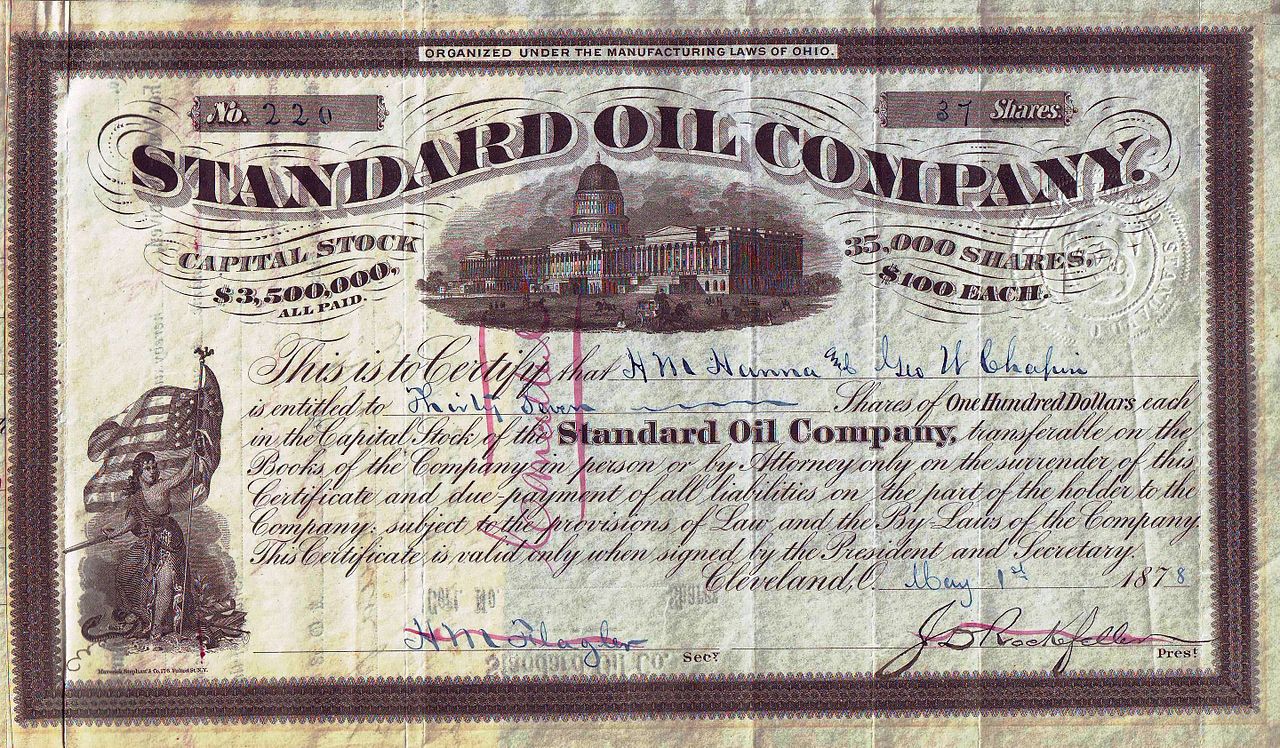 ORGANIZED UNDER THE MANUFACTURING LAWS OF OHIO.
No. 220
37 Shares.
STANDARD OIL COMPANY.
CAPITAL STOCK
$3,500,000,
ALL PAID.
35,000 SHARES,
$100 EACH.
This is to Certify that H M Hanna and Geo W Chapin
is entitled to Thirty Seven Shares of One Hundred Dollars each
in the Capital Stock of the Standard Oil Company, transferable on the
Books of the Company in person or by Attorney only on the surrender of this
Certificate and due payment of all liabilities on the part of the holder to the
Company, subject to the provisions of Law and the By-Laws of the Company.
This Certificate is valid only when signed by the President and Secretary.
Cleveland, O. May 1st 1878
Cancelled
H M Flagler Secy
J D Rockefeller Prest